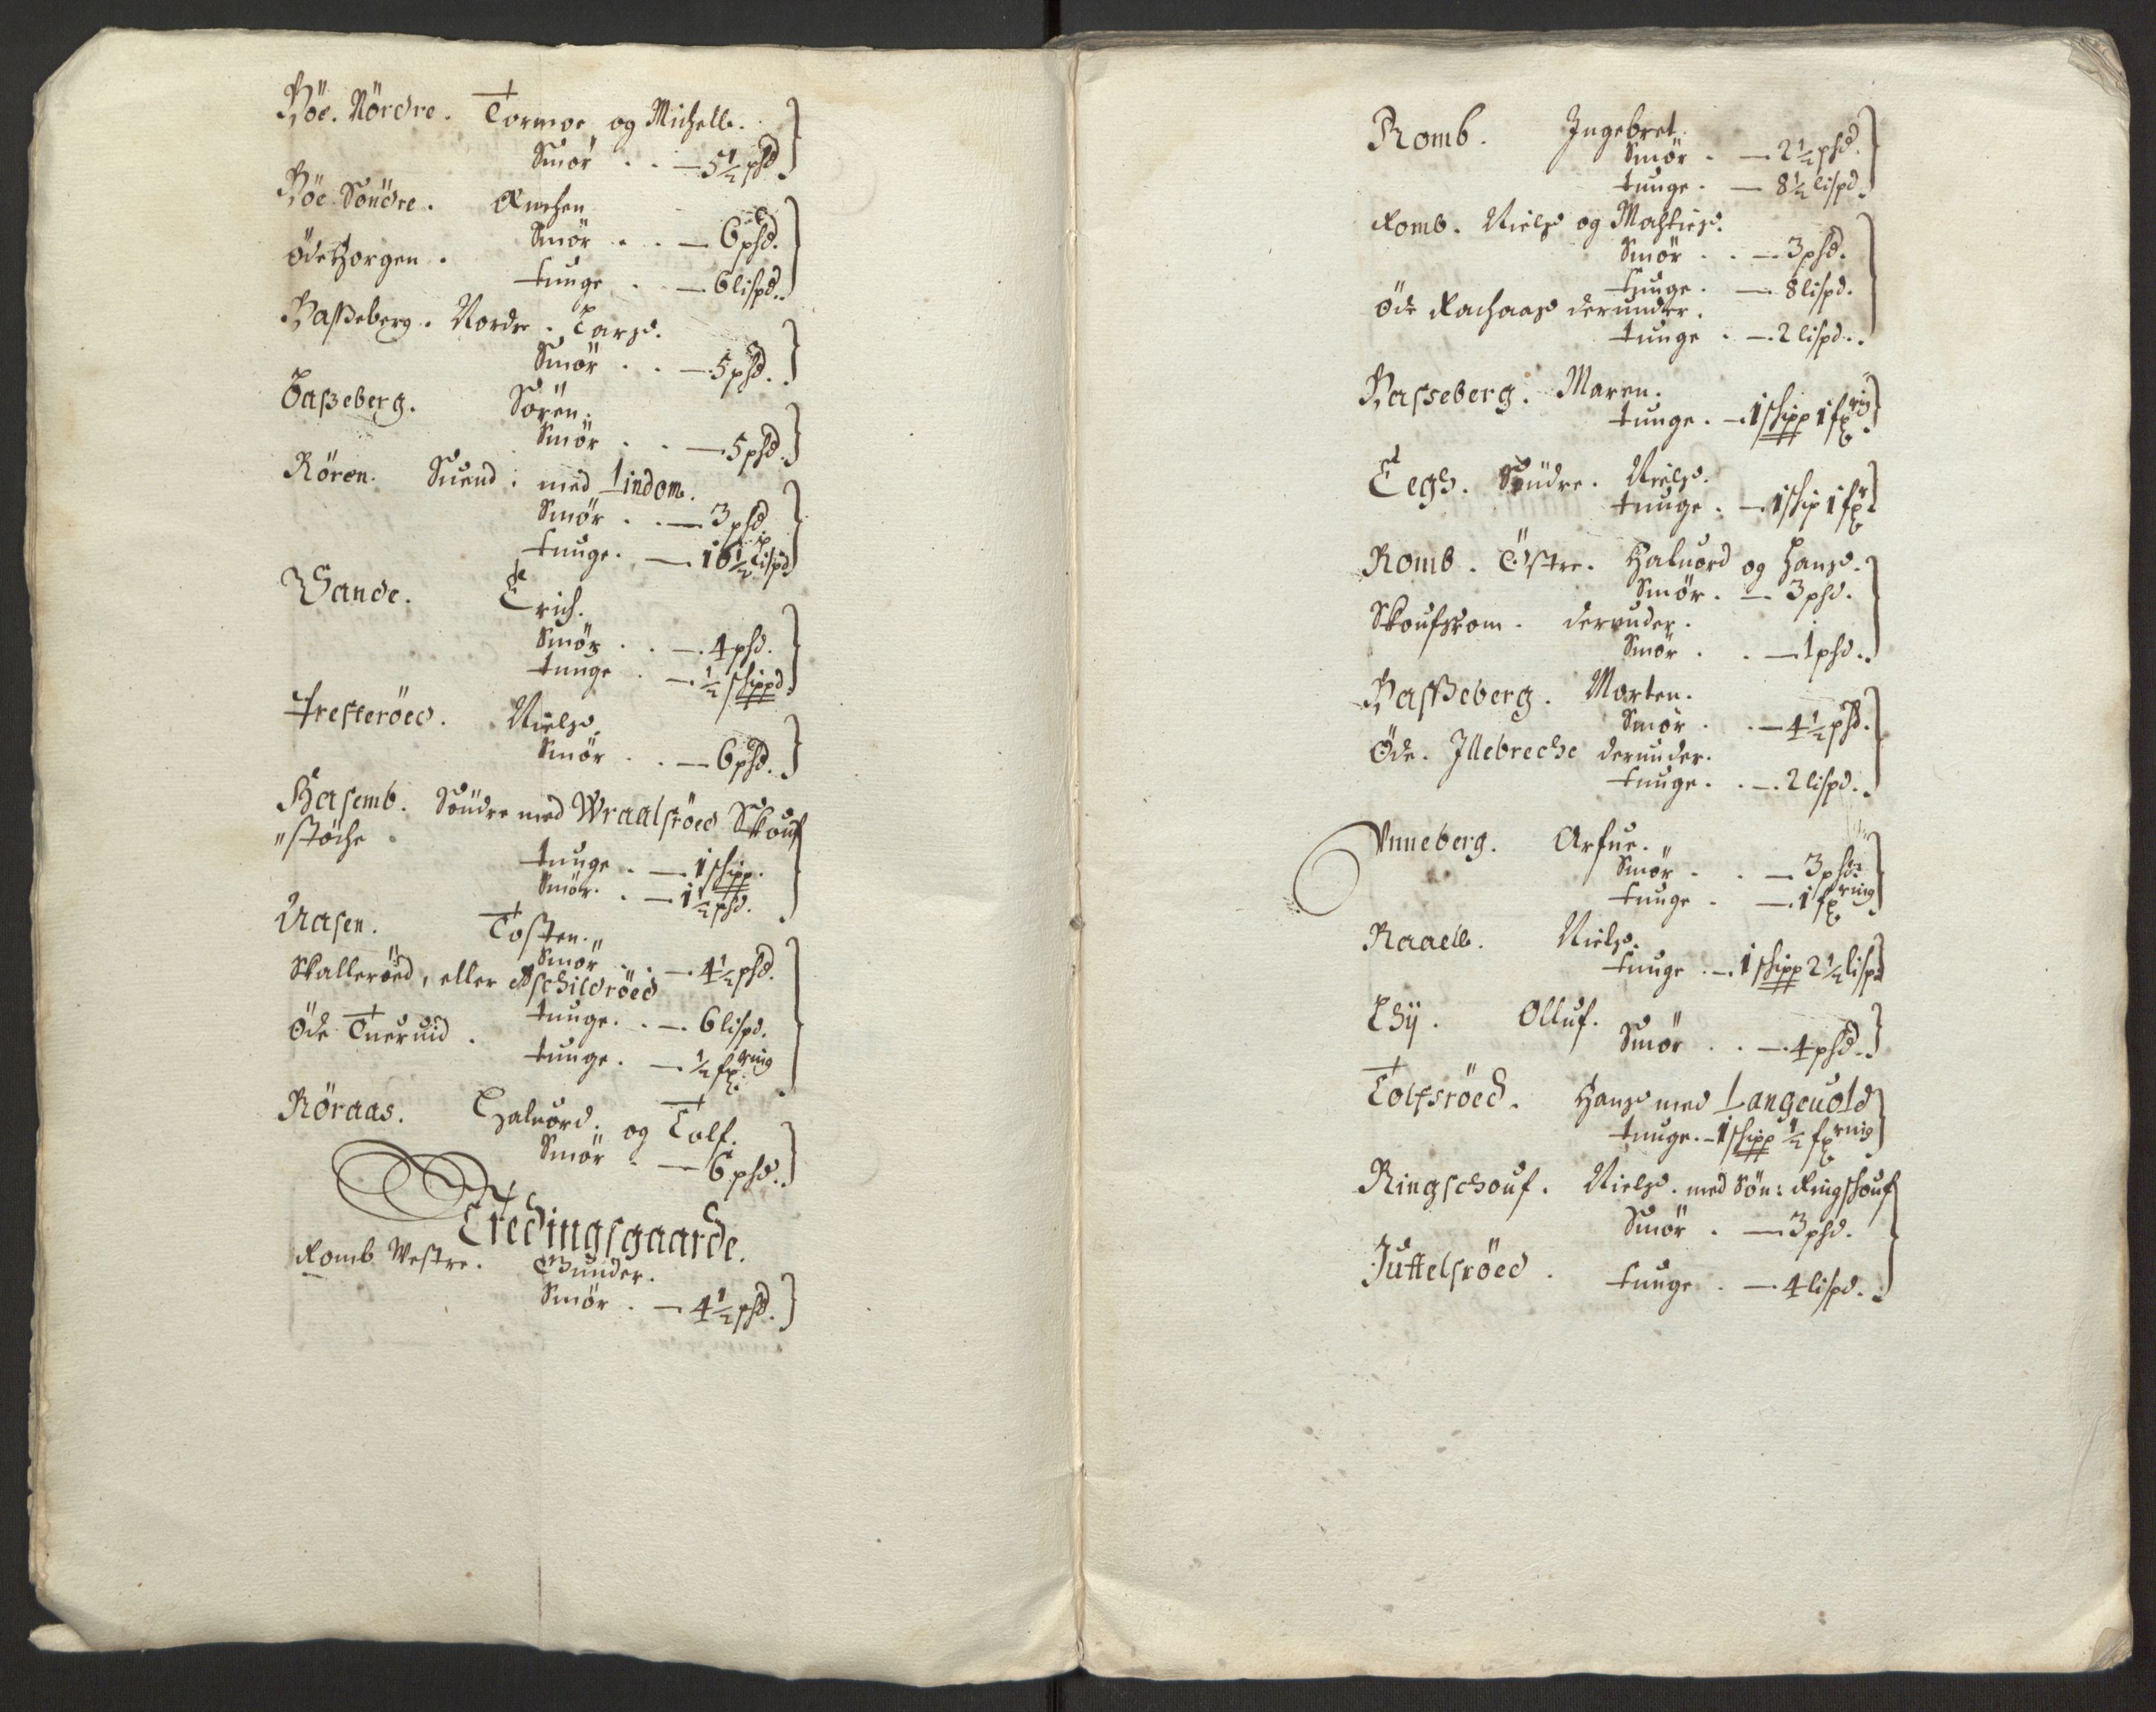 Böe. Nördre. Tormoe og Michell.
Smör . . — 5½ phd
Böe Söndre. Anchen
Smör . . — 6 phd.
Öde Horgen .
tunge . . — 6 lispd.
Basseberg. Nordre. Lars.
Smör . . — 5 phd.
Basseberg. Sören.
Smör . . — 5 phd.
Rören. Suend. med Lindom.
Smör . . — 3 phd
tunge. — 16½ lispd
Sande. Erich.
Smör . . — 4 phd.
tunge . — ½ schippd
Tresteröed. Niels.
Smör . . — 6 phd.
Basemb. Söndre med Wraalsröed Skouf
"stöche .
tunge . — 1 schipp.
Smör. . — 1½ phd.
Aasen. Tosten.
Smör . . — 4½ phd.
Skalleröed, eller Aschildröed
tunge. . — 6 lispd.
Öde Tueruid .
tunge. — ½ fxring
Röraas. Haluord. og Tolf.
Smör . — 6 phd.
Tredingsgaarde.
Romb Westre. Gunder.
Smör . — 4½ phd.
Romb. Ingebret.
Smör . — 2½ phd.
tunge. — 8½ lispd.
Romb. Niels og Mathies.
Smör . . — 3 phd.
tunge. — 8 lispd.
Öde Rachaas derunder.
tunge . — 2 lispd.
Basseberg. Maren.
tunge. — 1 schipp 1 fxrig
Eegh. Söndre. Niels.
tunge. — 1 ship 1 fxr
Romb. Östre. Haluord og Hans.
Smör. — 3 phd.
Skoufsrom. derunder.
Smör . . — 1 phd.
Basseberg. Morten.
Smör . . — 4½ phd.
Öde. Illebreche derunder.
tunge. . — 2 lispd.
Vnneberg. Arfue.
Smör . . — 3 phd.
tunge . — 1 fxring
Raaell. Niels.
tunge . — 1 schipp 2½ lispd
Bÿ. Olluf.
Smör . . — 4 phd.
Tolfsröed. Hans med Langeuold
tunge. — 1 schipp ½ fxrnig
Ringschouf. Niels. med Sön: Ringshouf
Smör . — 3 phd.
Juttelsröed .
tunge . — 4 lispd.